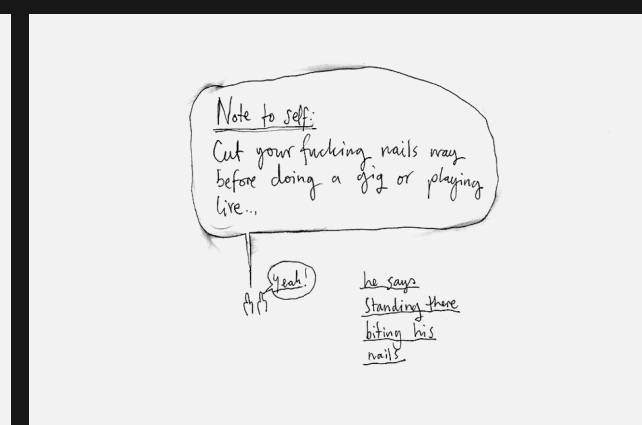 Note to self:
Cut your fucking nails way
before doing a gig or playing
live...
yeah!
he says
standing there
biting his
nails